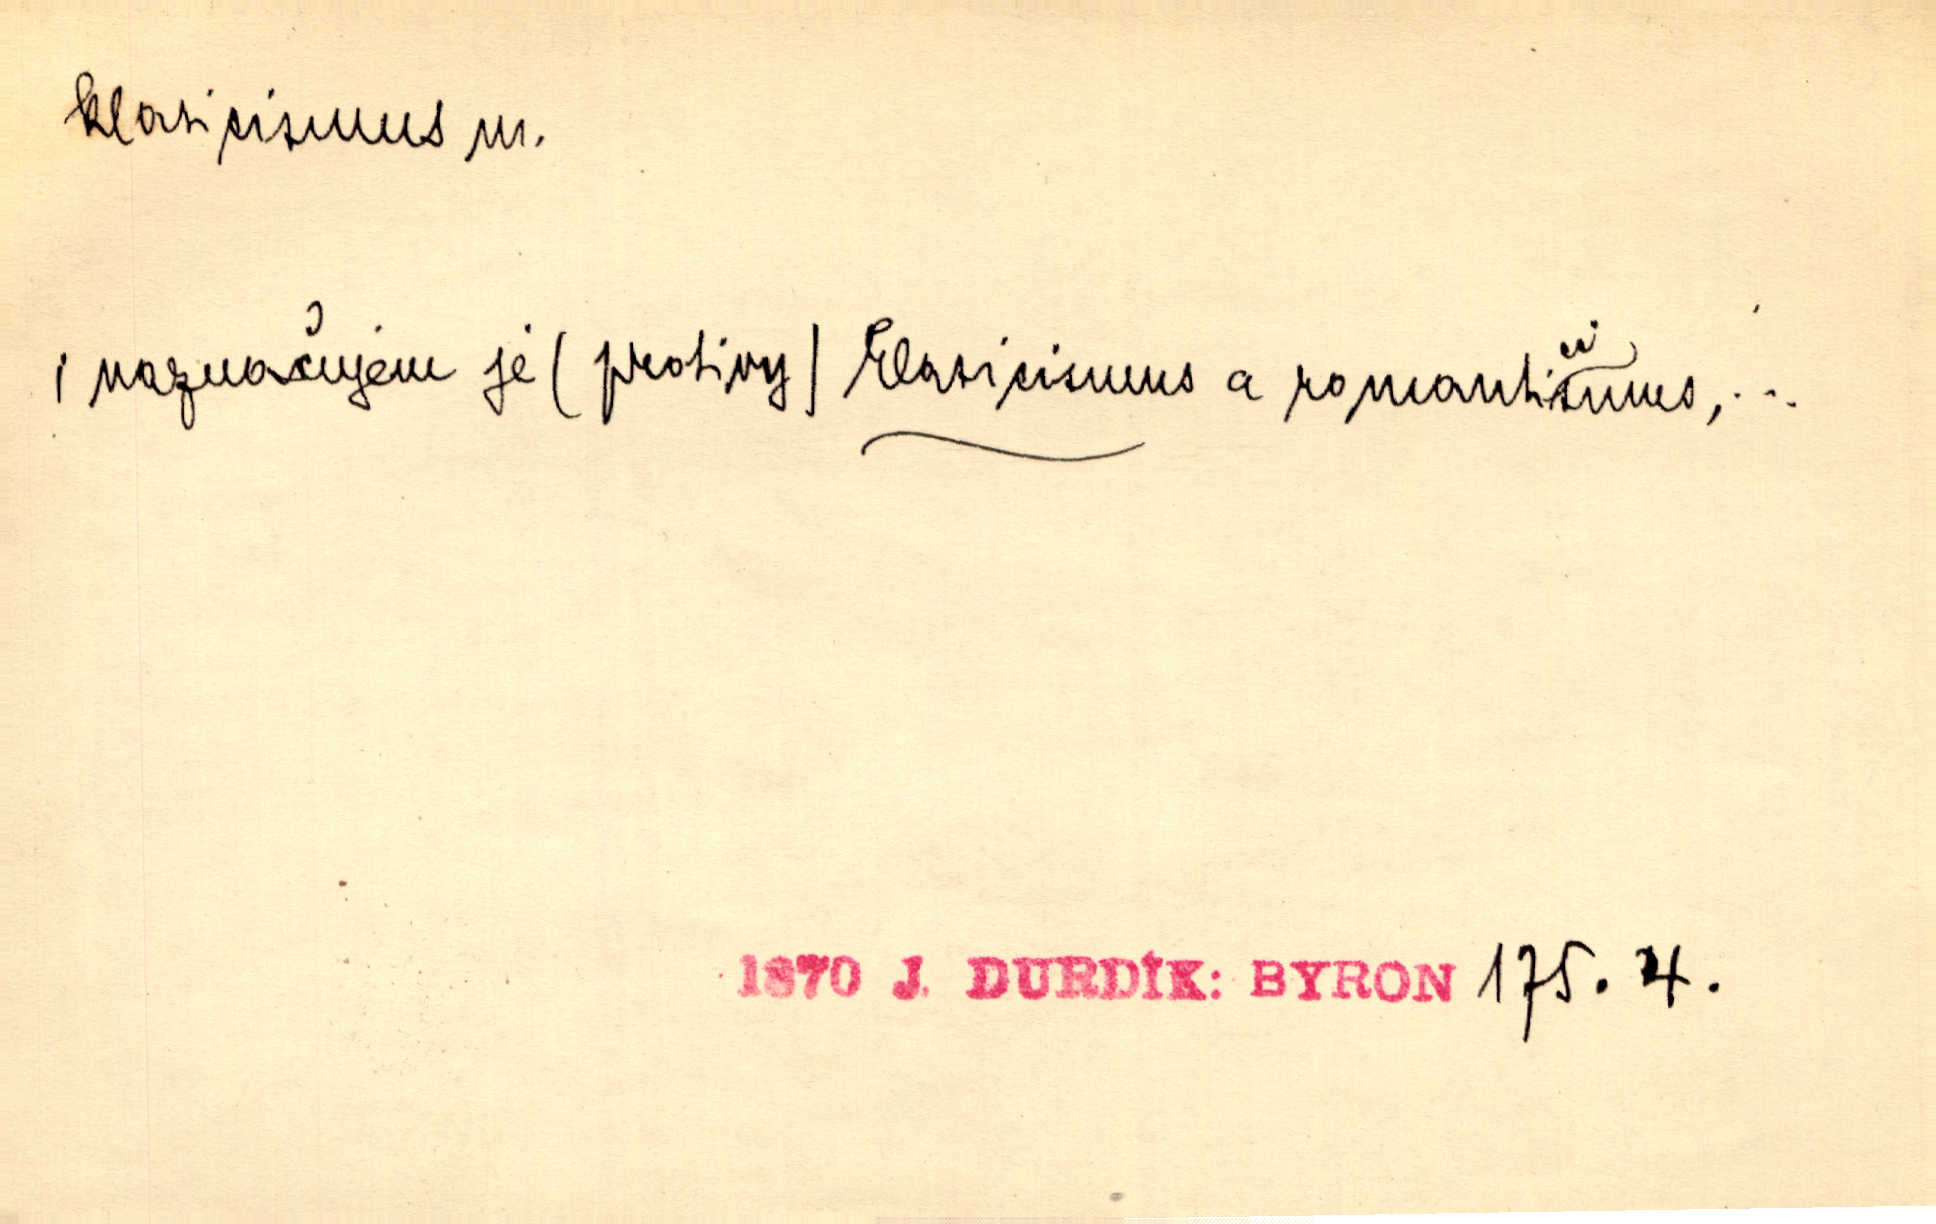 klasicismus m.
i naznačujem je (protivy) klasicismus a romanticismus, ...
1870 J. DURDÍK: BYRON 175. 4.